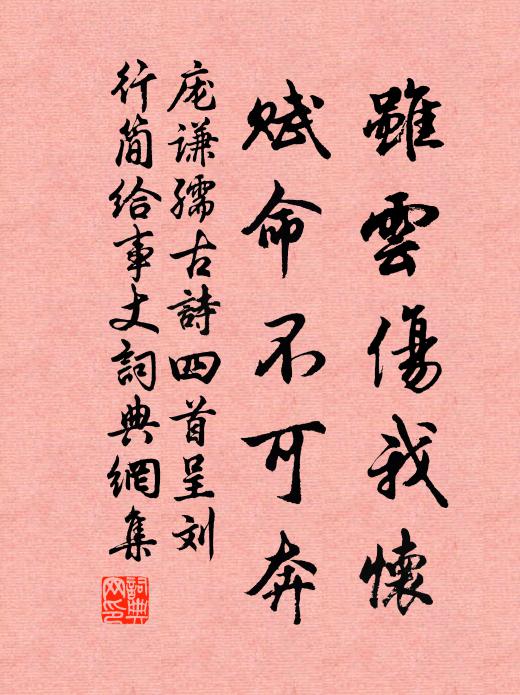 雖雲傷我懷
賦命不可奔
庞谦孺古詩四首呈刘
行简给事丈詞典網集
詞典网印